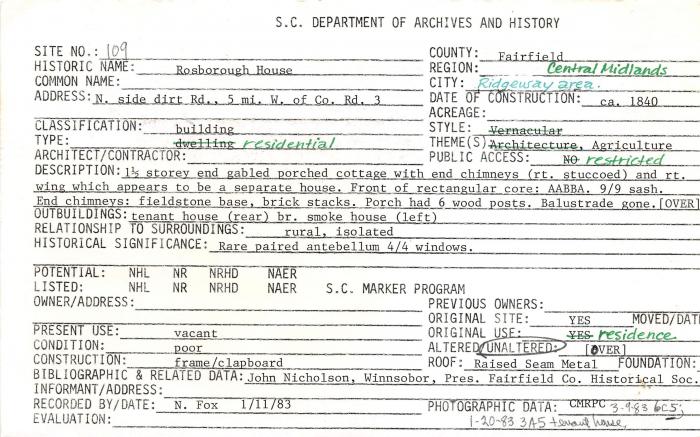 S.C. DEPARTMENT OF ARCHIVES AND HISTORY
SITE NO.: 109
COUNTY: Fairfield
HISTORIC NAME: Rosborough House
REGION: Central Midlands
COMMON NAME:
CITY: Ridgeway area.
ADDRESS: N. side dirt Rd., 5 mi. W. of Co. Rd. 3
DATE OF CONSTRUCTION: ca. 1840
ACREAGE:
CLASSIFICATION: building
STYLE: Vernacular
TYPE: dwelling residential
THEME(S) Architecture, Agriculture
ARCHITECT/CONTRACTOR:
PUBLIC ACCESS: NO restricted
DESCRIPTION: 1½ storey end gabled porched cottage with end chimneys (rt. stuccoed) and rt.
wing which appears to be a separate house. Front of rectangular core: AABBA. 9/9 sash.
End chimneys: fieldstone base, brick stacks. Porch had 6 wood posts. Balustrade gone.[OVER]
OUTBUILDINGS: tenant house (rear) br. smoke house (left)
RELATIONSHIP TO SURROUNDINGS: rural, isolated
HISTORICAL SIGNIFICANCE: Rare paired antebellum 4/4 windows.
POTENTIAL: NHL NR NRHD NAER
LISTED: NHL NR NRHD NAER S.C. MARKER PROGRAM
OWNER/ADDRESS:
PREVIOUS OWNERS:
ORIGINAL SITE: YES MOVED/DAT
PRESENT USE: vacant
ORIGINAL USE: YES residence
CONDITION: poor
ALTERED/UNALTERED: [OVER]
CONSTRUCTION: frame/clapboard
ROOF: Raised Seam Metal FOUNDATION:
BIBLIOGRAPHIC & RELATED DATA: John Nicholson, Winnsobor, Pres. Fairfield Co. Historical Soc.
INFORMANT/ADDRESS:
RECORDED BY/DATE: N. Fox 1/11/83
PHOTOGRAPHIC DATA: CMRPC 3-9-83 6C5;
EVALUATION: 1-20-83 3A5 tenant house,